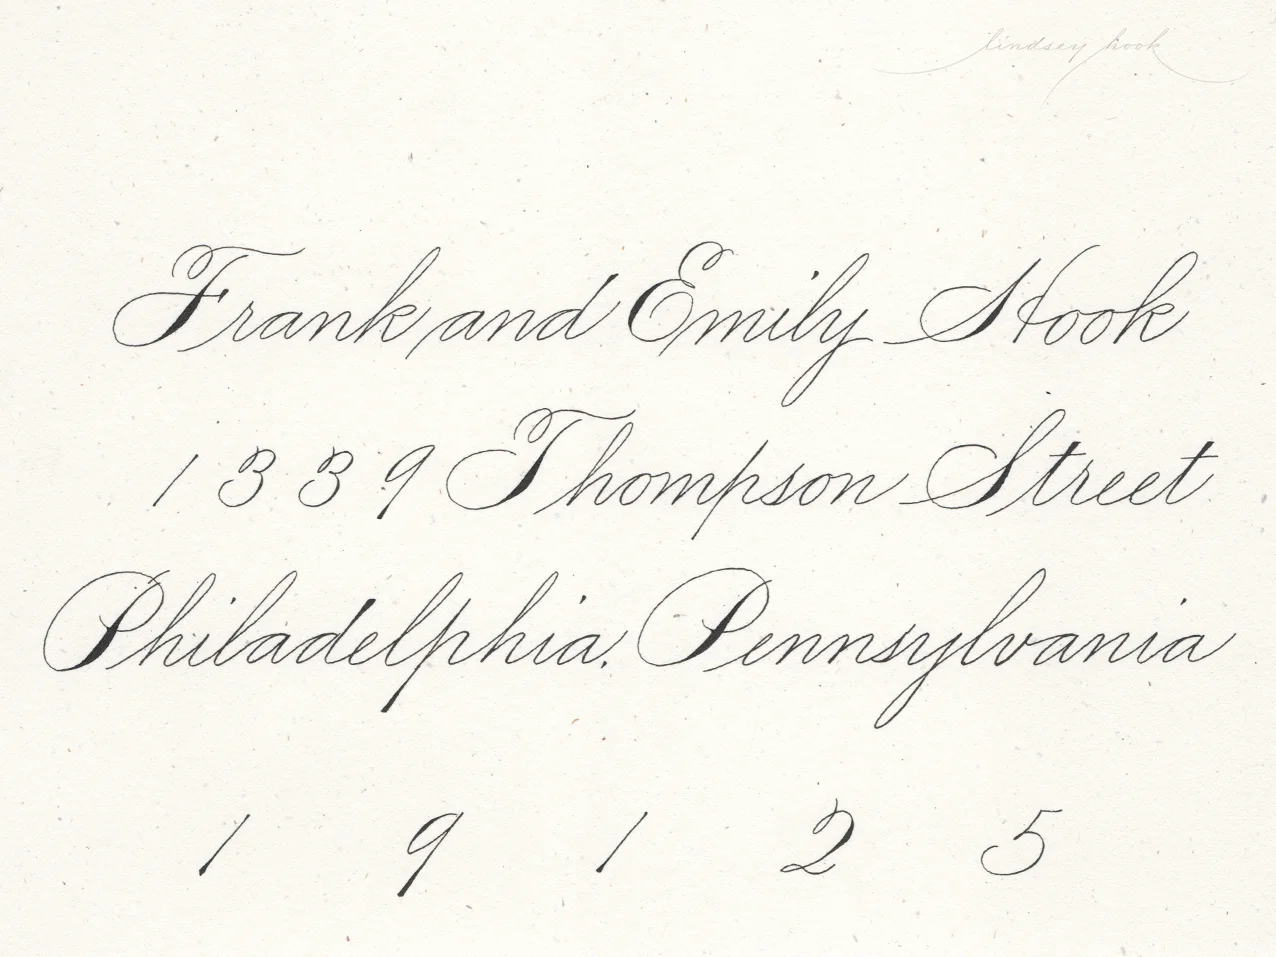 lindsey hook
Frank and Emily Hook
1339 Thompson Street
Philadelphia, Pennsylvania
19125